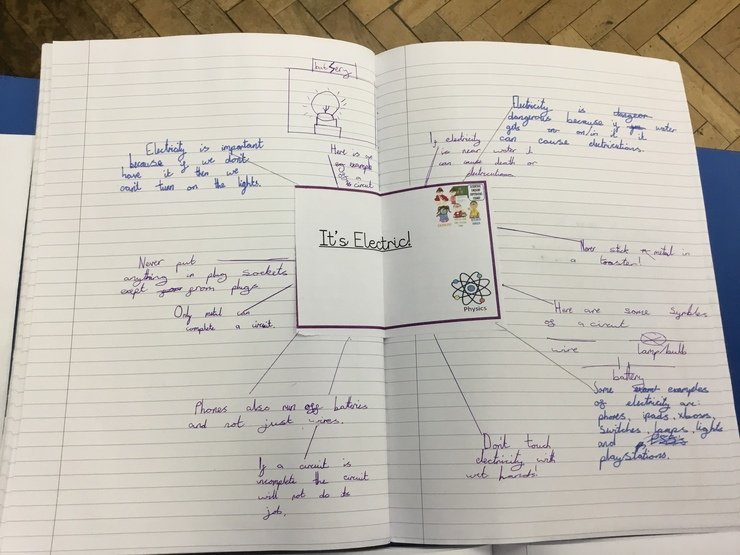 Electricity is important
because if we don't
have it then we
can't turn on the lights.
Here is
example
circuit
Never put
anything in plug sockets
exept from plugs.
Only metal can
complete a circuit.
Phones also run off batteries
and not just wires.
If a circuit is
incomplete the circuit
will not do its
job.
It's Electric!
Physics
If electricity
is near water it
can cause death or
Electricity is
dangerous because if water
gets on/in it it
can cause
Never stick metal in
a toaster!
Here are some symbles
of a circuit
wire
lamp/bulb
battery
Some examples
of electricity are
phones, ipads, xboxs,
switches, lamps, lights
and
playstations.
Don't touch
electricity with
wet hands!